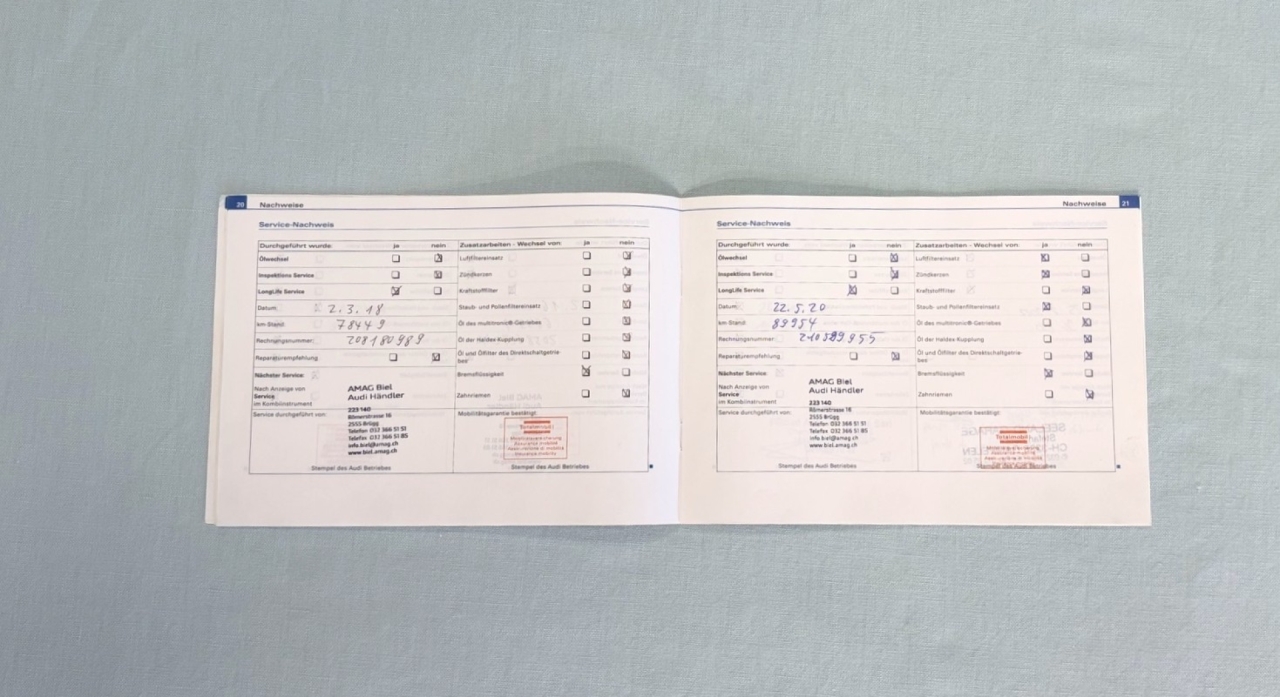 20 Nachweise
Service-Nachweis
Durchgeführt wurde: ja nein
Ölwechsel
Inspektions Service
LongLife Service
Datum: 2.3.18
km-Stand: 78449
Rechnungsnummer:
Reparaturempfehlung
Nächster Service
Nach Anzeige von
Service
im Kombiinstrument
AMAG Biel
Audi Händler
223 140
Römerstrasse 16
2555 Brügg
Telefon 032 366 51 51
Telefax 032 366 51 85
info.biel@amag.ch
www.biel.amag.ch
Service durchgeführt von:
Stempel des Audi Betriebes
Zusatzarbeiten - Wechsel von: ja nein
Luftfiltereinsatz
Zündkerzen
Kraftstofffilter
Staub- und Pollenfiltereinsatz
Öl des multitronic®-Getriebes
Öl der Haldex-Kupplung
Öl und Ölfilter des Direktschaltgetrie-
bes
Bremsflüssigkeit
Zahnriemen
Mobilitätsgarantie bestätigt:
Totalmobil!
Stempel des Audi Betriebes
Nachweise 21
Service-Nachweis
Durchgeführt wurde: ja nein
Ölwechsel
Inspektions Service
LongLife Service
Datum: 22.5.20
km-Stand: 89954
Rechnungsnummer: 210589955
Reparaturempfehlung
Nächster Service
Nach Anzeige von
Service
im Kombiinstrument
AMAG Biel
Audi Händler
223 140
Römerstrasse 16
2555 Brügg
Telefon 032 366 51 51
Telefax 032 366 51 85
info.biel@amag.ch
www.biel.amag.ch
Service durchgeführt von:
Stempel des Audi Betriebes
Zusatzarbeiten - Wechsel von: ja nein
Luftfiltereinsatz
Zündkerzen
Kraftstofffilter
Staub- und Pollenfiltereinsatz
Öl des multitronic®-Getriebes
Öl der Haldex-Kupplung
Öl und Ölfilter des Direktschaltgetrie-
bes
Bremsflüssigkeit
Zahnriemen
Mobilitätsgarantie bestätigt:
Totalmobil!
Stempel des Audi Betriebes